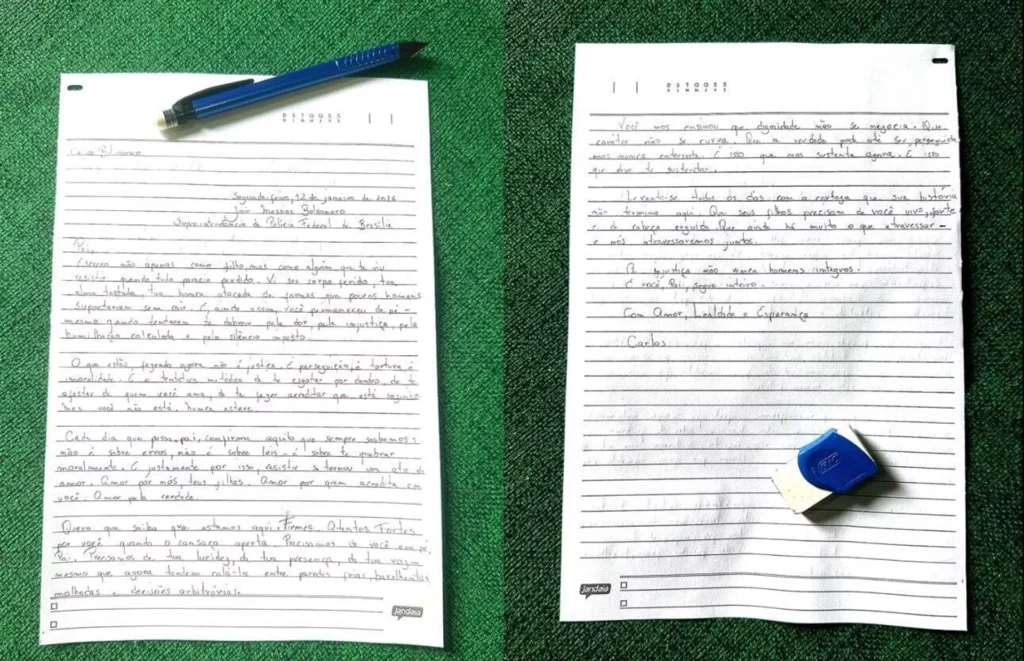 D S T Q Q S S
Segunda-feira, 12 de janeiro de 2026
Jair Messias Bolsonaro
Superintendência da Polícia Federal de Brasília
Pai,
Escrevo não apenas como filho, mas como alguém que te viu
resistir quando tudo parecia perdido. Vi seu corpo ferido, tua
alma testada, tua honra atacada de formas que poucos homens
suportariam sem cair. E, ainda assim, você permaneceu de pé -
mesmo quando tentaram te dobrar pela dor, pela injustiça, pela
humilhação calculada e pelo silêncio imposto.
O que estão fazendo agora não é justiça. É perseguição, é tortura, é
imoralidade. É a tentativa metódica de te esgotar por dentro, de te
afastar de quem você ama, de te fazer acreditar que está sozinho.
Mas você não está. Nunca esteve.
Cada dia que passa, pai, confirma aquilo que sempre soubemos:
não é sobre erros, não é sobre leis - é sobre te quebrar
moralmente. E justamente por isso, resistir se tornou um ato de
amor. Amor por nós, teus filhos. Amor por quem acredita em
você. Amor pela verdade.
Quero que saiba que estamos aqui. Firmes. Atentos. Fortes
por você quando o cansaço aperta. Precisamos de você em pé,
Pai. Precisamos da tua lucidez, da tua presença, da tua voz -
mesmo que agora tentem calá-la entre paredes frias, barulhentas
molhadas e decisões arbitrárias.
jandaia
D S T Q Q S S
Você nos ensinou que dignidade não se negocia. Que
caráter não se curva. Que a verdade pode até ser perseguida
mas nunca enterrada. É isso que nos sustenta agora. É isso
que deve te sustentar.
Levante-se todos os dias com a certeza que sua história
não termina aqui. Que seus filhos precisam de você vivo, forte
e de cabeça erguida. Que ainda há muito o que atravessar -
e nós atravessaremos juntos.
A injustiça não vence homens íntegros.
E você, Pai, segue inteiro.
Com Amor, Lealdade e Esperança
Carlos
jandaia